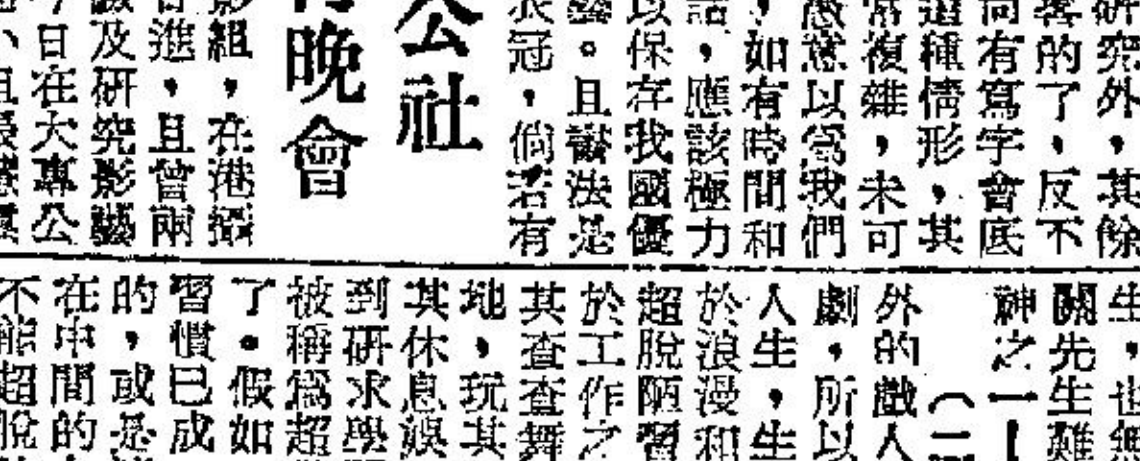 研究外，其餘
的了，反不
尚有寫字會底
這種情形，其
常複雜，未可
愚意以爲我們
，如有時間和
話，應該極力
以保存我國優
藝。且法是
衣冠，倘若有
公社
晚會
影組，在港攝
進，且曾兩
及研究影藝
日在大專公
生，也無
關先生雖
神之一
外的戲人
劇，所以
人生，生
於浪漫和
超脫陋習
於工作之
其查查舞
地，玩其
其休息娛
到研求學
被稱爲超
了。假如
習慣已成
的，或是
在中間的
不能超脫